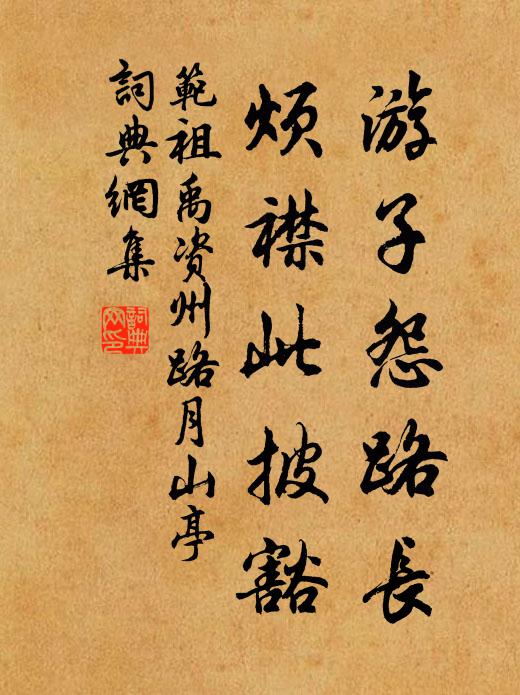 游子怨路長
煩襟此披豁
範祖禹资州路月山亭
詞典網集
詞典網印